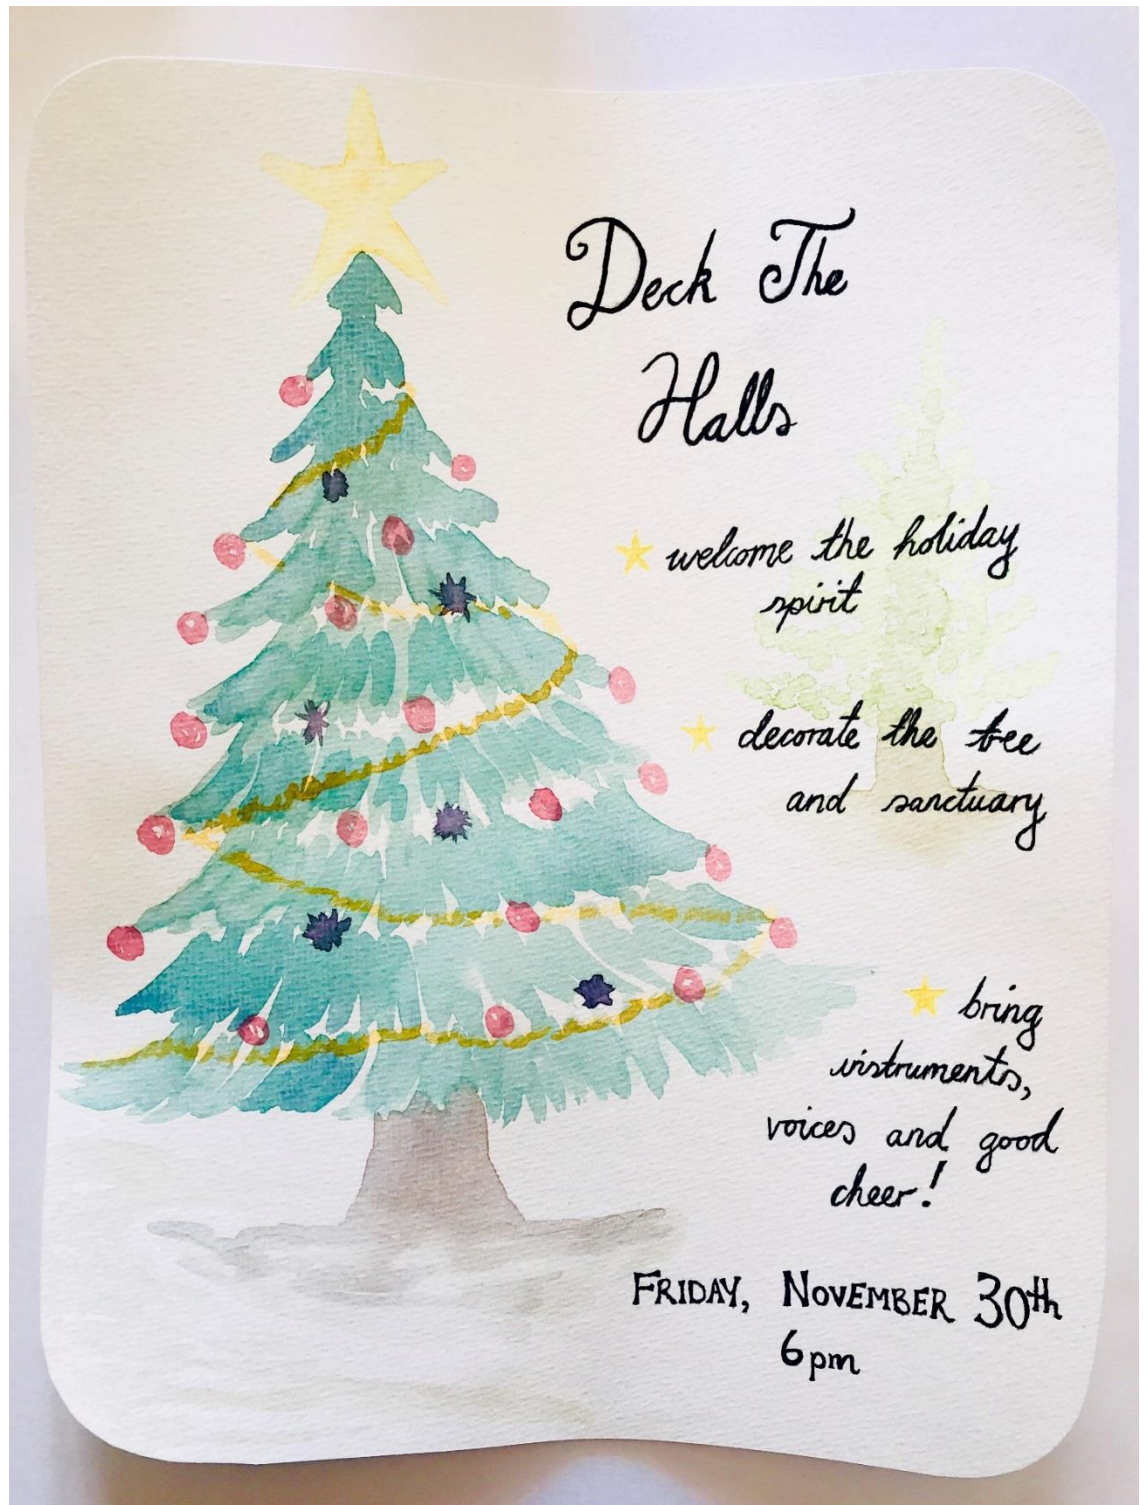 Deck The
Halls
welcome the holiday
spirit
decorate the tree
and sanctuary
bring
instruments,
voices and good
cheer!
FRIDAY, NOVEMBER 30th
6pm